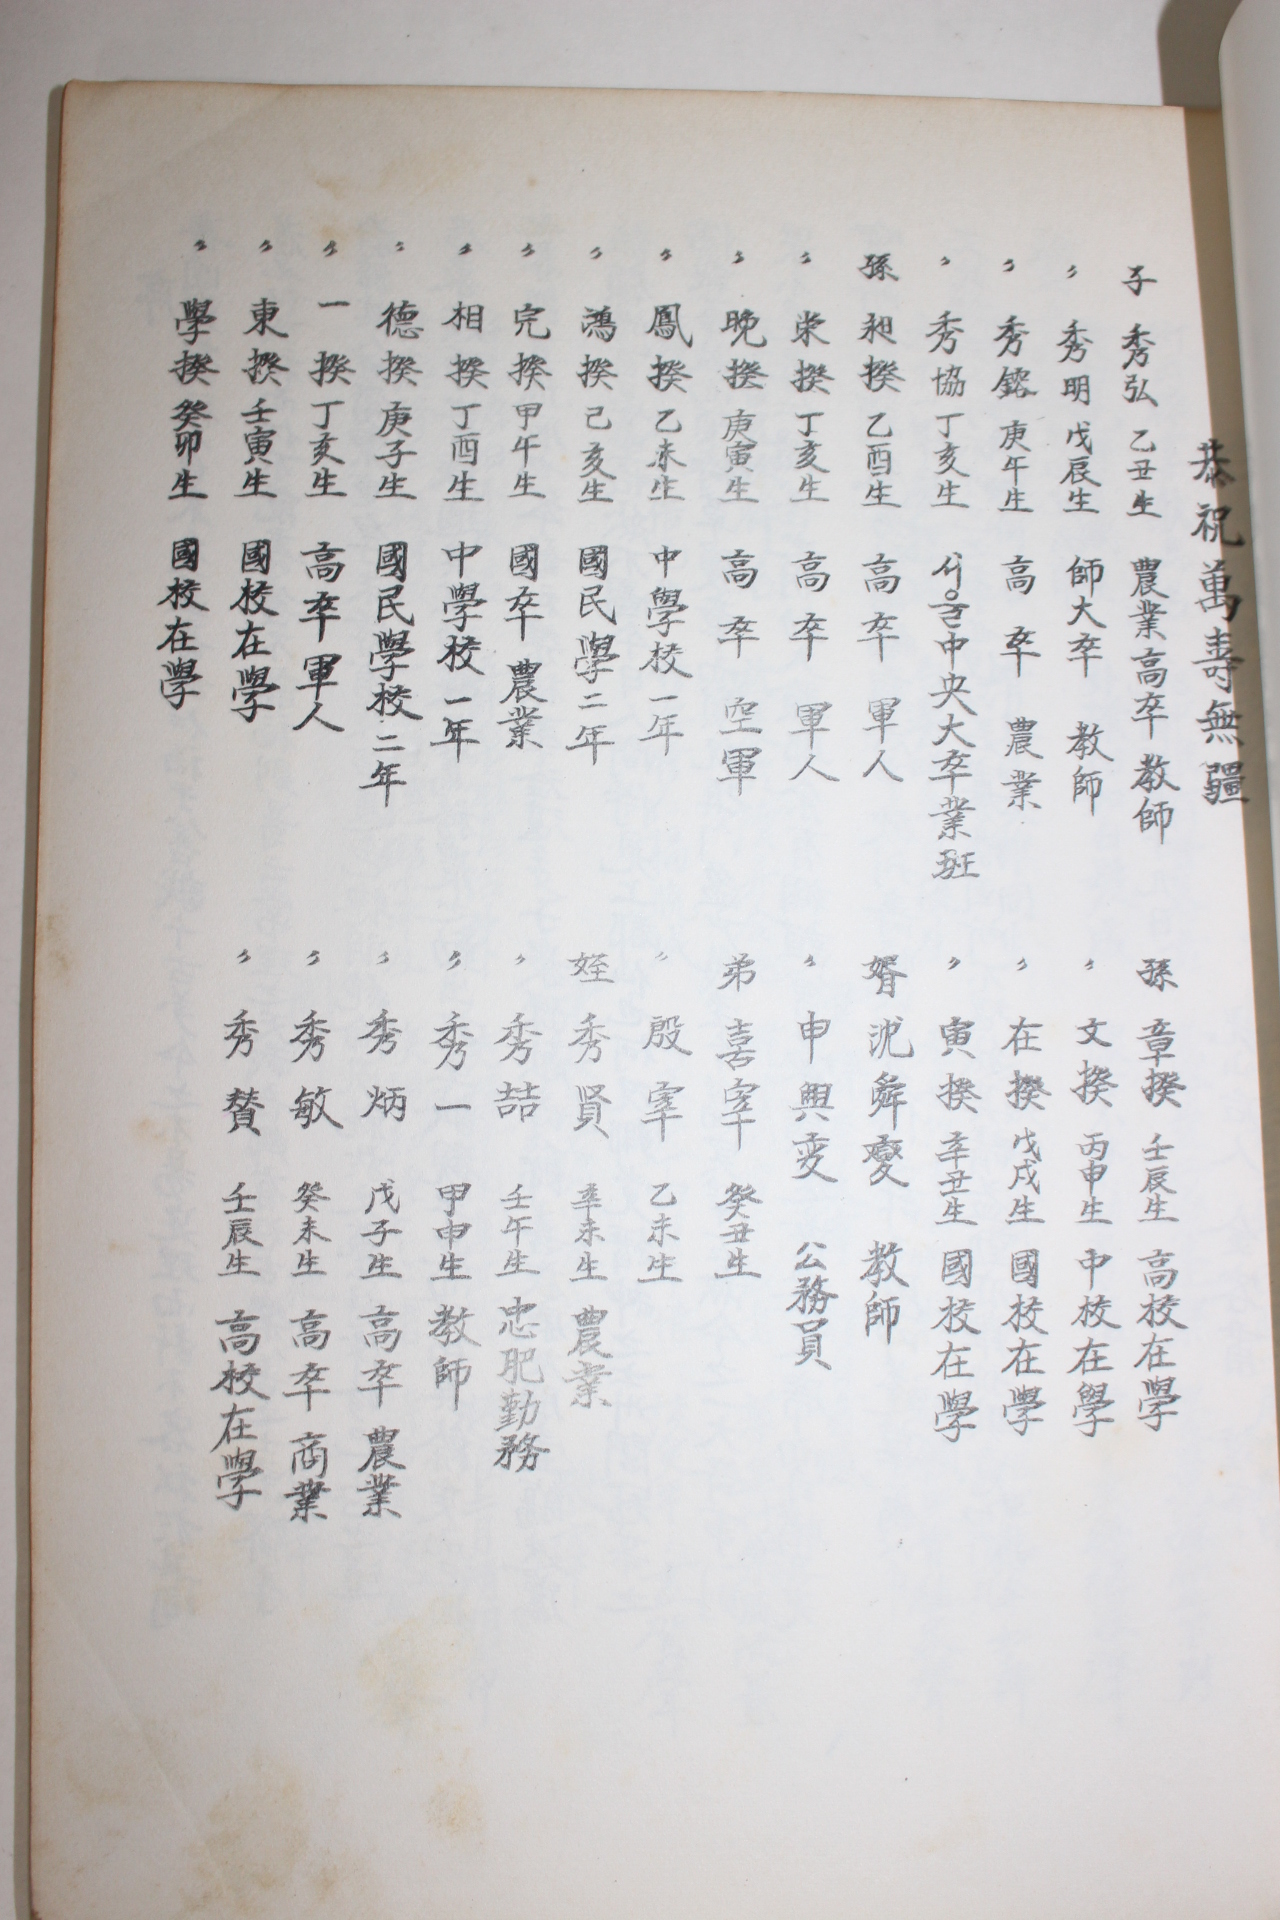 恭祝萬壽無疆
子 秀弘 乙丑生 農業高卒 教師
〃 秀明 戊辰生 師大卒 教師
〃 秀銘 庚午生 高卒 農業
〃 秀協 丁亥生 서울中央大卒業班
孫 昶揆 乙酉生 高卒 軍人
〃 栄揆 丁亥生 高卒 軍人
〃 晩揆 庚寅生 高卒 空軍
〃 鳳揆 乙未生 中學校一年
〃 鴻揆 己亥生 國民學二年
〃 完揆 甲午生 國卒 農業
〃 相揆 丁酉生 中學校一年
〃 德揆 庚子生 國民學校二年
〃 一揆 丁亥生 高卒軍人
〃 東揆 壬寅生 國校在學
〃 學揆 癸卯生 國校在學
孫 章揆 壬辰生 高校在學
〃 文揆 丙申生 中校在學
〃 在揆 戊戌生 國校在學
〃 寅揆 辛丑生 國校在學
婿 沈舜燮 教師
〃 申興変 公務員
弟 喜宰 癸丑生
〃 殷宰 乙未生
姪 秀賢 辛未生 農業
〃 秀喆 壬午生 忠肥勤務
〃 秀一 甲申生 教師
〃 秀炳 戊子生 高卒 農業
〃 秀敏 癸未生 高卒 商業
〃 秀賛 壬辰生 高校在學